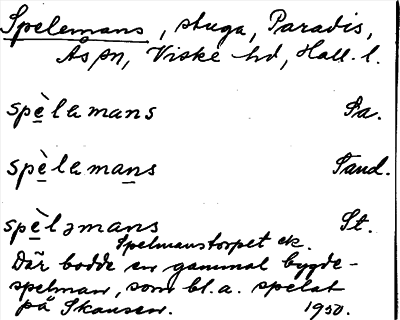 Spelemans, stuga, Paradis,
Ås sn, Viske hd, Hall. l.
spèlamans Pa.
spèlamans Sand.
spèləmans St.
Spelmanstorpet ek.
Där bodde en gammal bygde-
spelman, som bl. a. spelat
på Skansen. 1950.